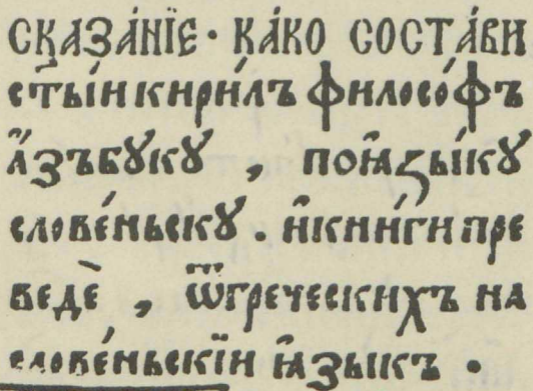 СКАЗА́НЇЕ · КА́КО СОСТА́ВИ
ст҃ы́и кири́лъ филосо́фъ
а҆́зъбꙋкꙋ , поꙗ҆зы́кꙋ
слове́ньскꙋ . и҆кни́ги пре
ведѐ , ѿгре́ческихъ на
слове́ньскїи ꙗ҆зы́къ ·